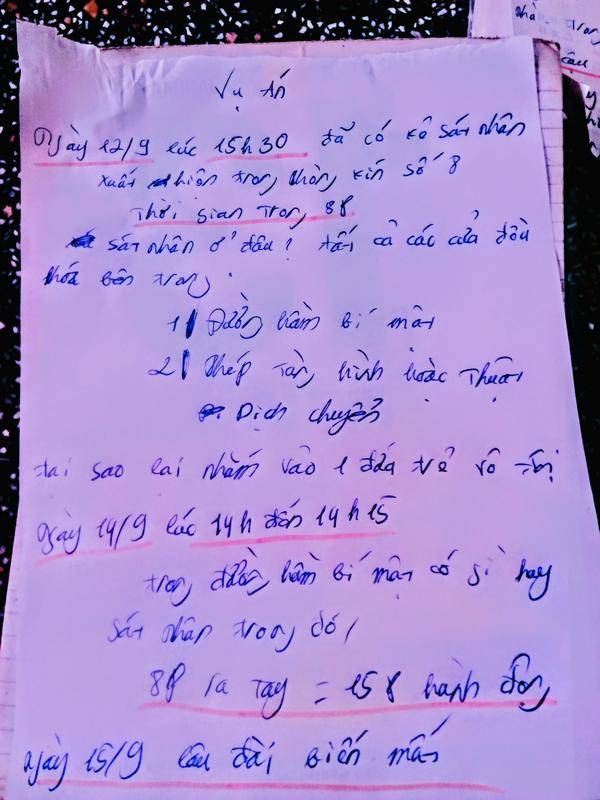 Vụ án
Ngày 12/9 lúc 15h30 đã có kẻ sát nhân
xuất hiện trong phòng kín số 8
Thời gian trong 8P
sát nhân ở đâu? tất cả các cửa đều
khóa bên trong.
1 Đường hầm bí mật
2 Phép tàng hình hoặc Thuật
Dịch chuyển
tại sao lại nhắm vào 1 đứa trẻ vô tội
Ngày 14/9 lúc 14h đến 14h15
trong đường hầm bí mật có gì hay
sát nhân trong đó,
8P ra tay = 15P hành động
Ngày 15/9 lâu đài biến mất
nhà trong